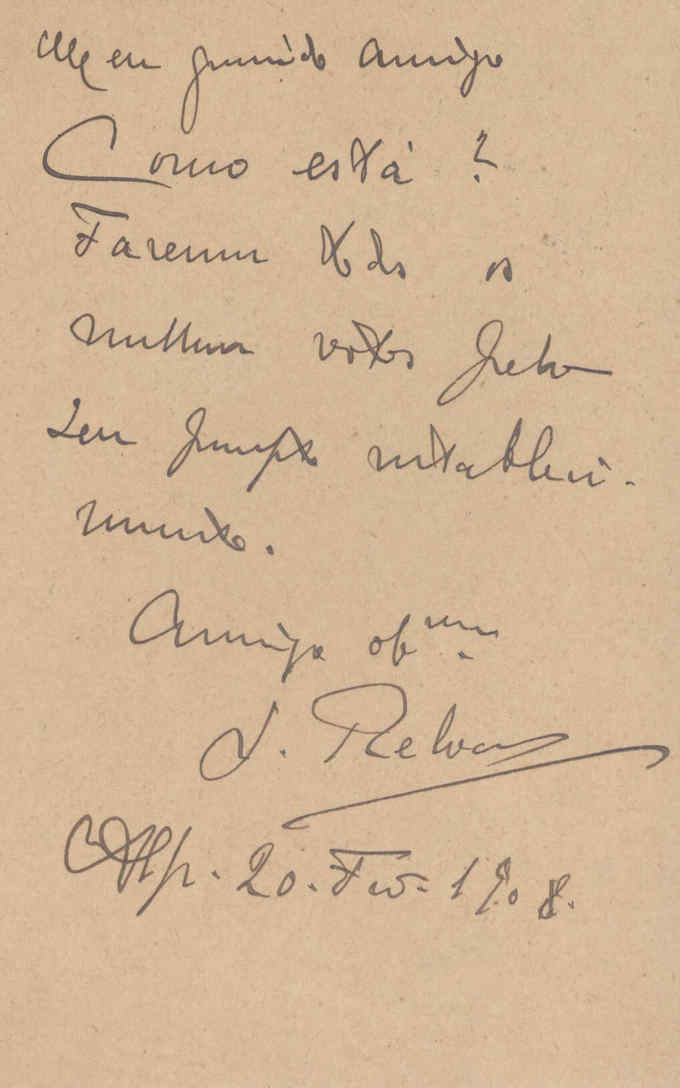 Meu querido Amigo
Como está?
Fazemos todos os
melhores votos pelo
seu prompto restabeleci-
mento.
Amigo obmo.
J. Relvas
Alp. 20. Fev. 1908.